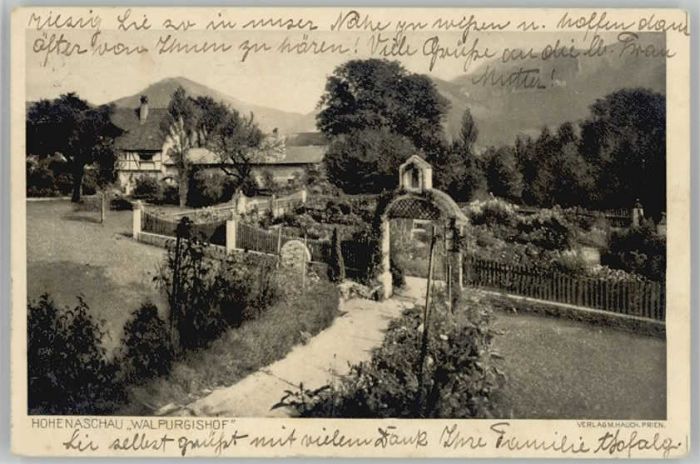 riesig Sie so in unser Nähe zu wissen u. hoffen dann
öfter von Ihnen zu hören! Viele Grüße an die lb. Frau
Mutter!
HOHENASCHAU „WALPURGISHOF"
VERLAG M. HAUCH, PRIEN.
Sie selbst grüßt mit vielem Dank Ihre Familie